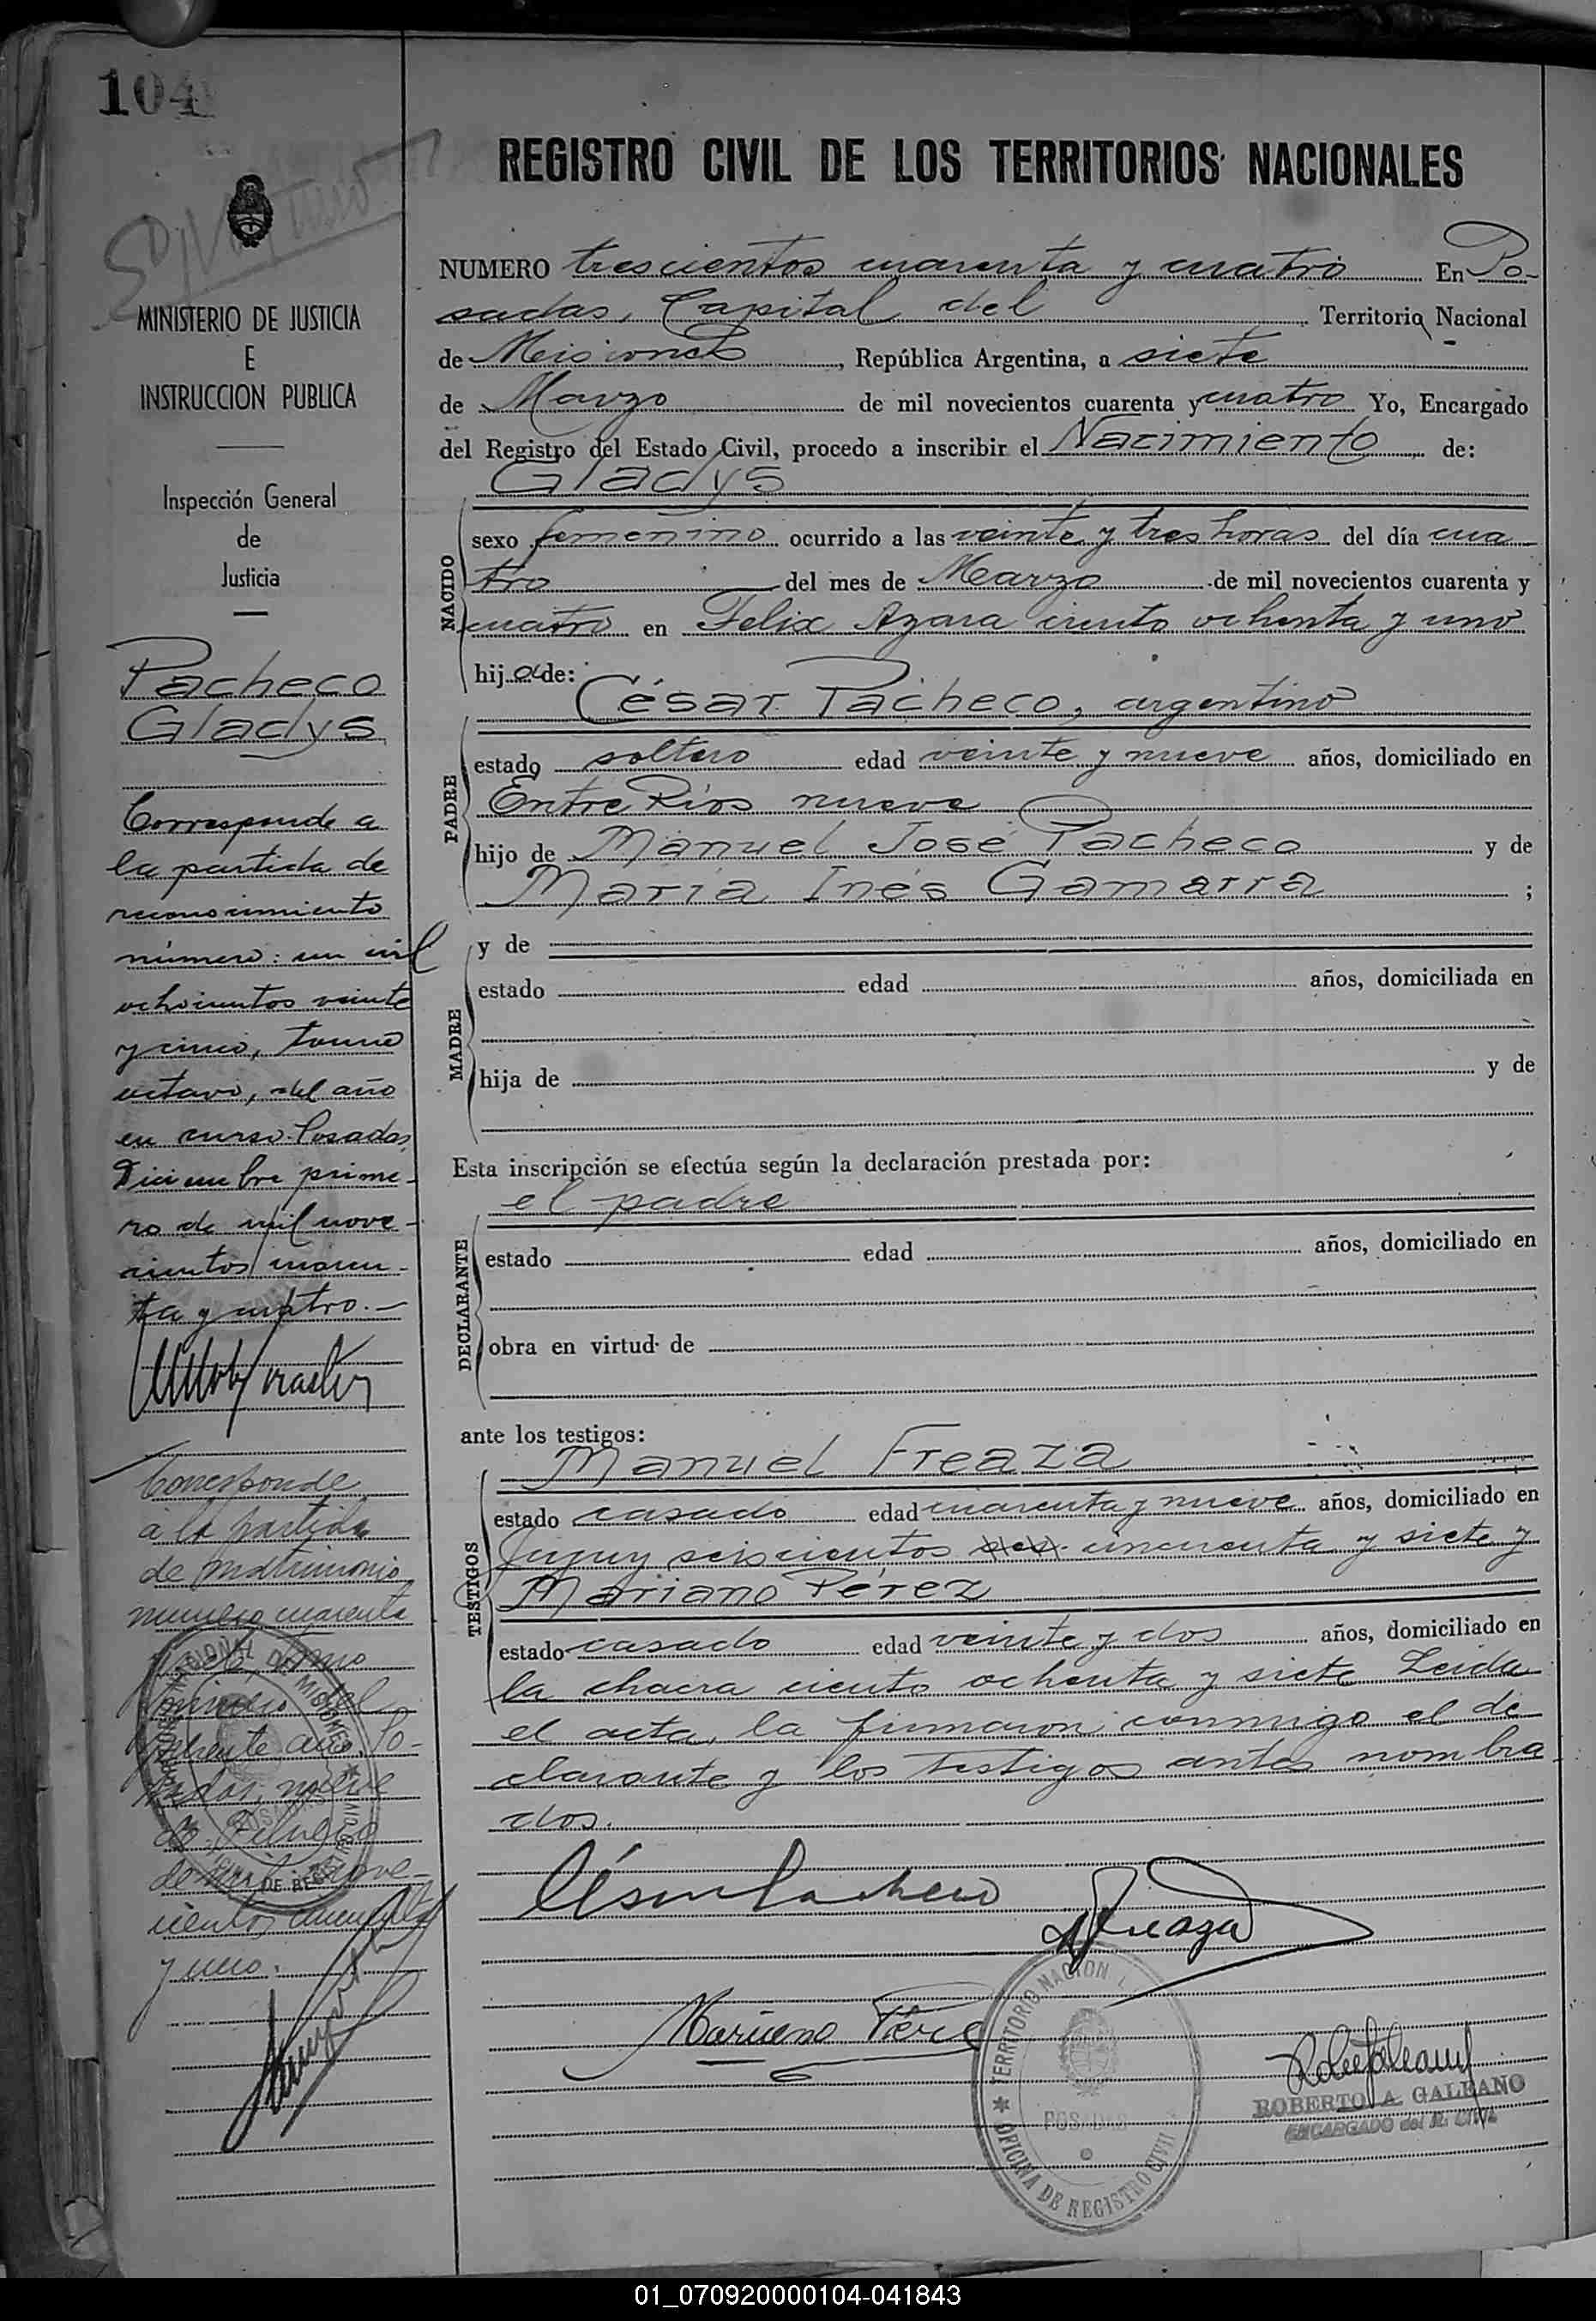 104
MINISTERIO DE JUSTICIA
E
INSTRUCCION PUBLICA
Inspección General
de
Justicia
Pacheco
Gladys
Corresponde a
la partida de
reconocimiento
número: un mil
ochocientos veinte
y cinco, tomo
octavo, del año
en curso. Posadas,
Diciembre prime-
ro de mil nove-
cientos cuaren-
ta y cuatro.-
Corresponde
a la partida
de matrimonio
número cuarenta
tomo
primero del
presente año. Po-
sadas, nueve
de Febrero
de mil nove-
cientos cuarenta
y uno.
REGISTRO CIVIL DE LOS TERRITORIOS NACIONALES
NUMERO trescientos cuarenta y cuatro En Po-
sadas, Capital del Territorio Nacional
de Misiones, República Argentina, a siete
de Marzo de mil novecientos cuarenta y cuatro Yo, Encargado
del Registro del Estado Civil, procedo a inscribir el Nacimiento de:
Gladys
NACIDO
sexo femenino ocurrido a las veinte y tres horas del día cua
tro del mes de Marzo de mil novecientos cuarenta y
cuatro en Felix Azara ciento ochenta y uno
hij a de:
César Pacheco, argentino
PADRE
estado soltero edad veinte y nueve años, domiciliado en
Entre Rios nueve
hijo de Manuel José Pacheco y de
María Inés Gamarra ;
MADRE
y de
estado edad años, domiciliada en
hija de y de
Esta inscripción se efectúa según la declaración prestada por:
el padre
DECLARANTE
estado edad años, domiciliado en
obra en virtud de
ante los testigos:
Manuel Freaza
TESTIGOS
estado casado edad cuarenta y nueve años, domiciliado en
Jujuy seiscientos cincuenta y siete y
Mariano Pérez
estado casado edad veinte y dos años, domiciliado en
la chacra ciento ochenta y siete Leida
el acta, la firmaron conmigo el de
clarante y los testigos antes nombra
dos.
César Pacheco
Freaza
Mariano Pérez
TERRITORIO NACIONAL
POSADAS
OFICINA DE REGISTRO CIVIL
ROBERTO A. GALEANO
ENCARGADO del R. CIVIL
01_070920000104-041843